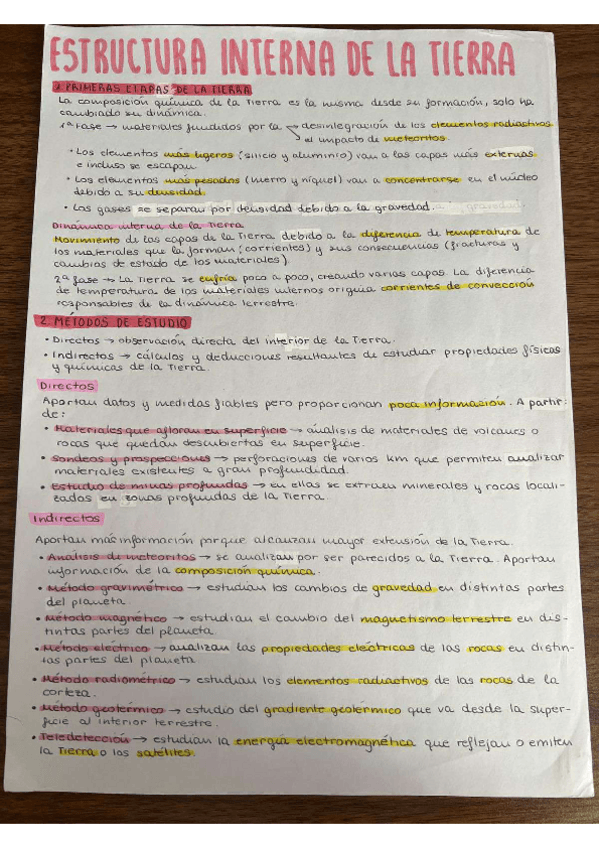 ESTRUCTURA INTERNA DE LA TIERRA
1. PRIMERAS ETAPAS DE LA TIERRA
La composición química de la Tierra es la misma desde su formación, solo ha
cambiado su dinámica.
1ª Fase → materiales fundidos por la → desintegración de los elementos radiactivos
el impacto de meteoritos.
• Los elementos más ligeros (silicio y aluminio) van a las capas más externas
e incluso se escapan.
• Los elementos más pesados (hierro y níquel) van a concentrarse en el núcleo
debido a su densidad.
• Los gases se separan por densidad debido a la gravedad.
Dinámica interna de la Tierra
Movimiento de las capas de la Tierra debido a la diferencia de temperatura de
los materiales que la forman (corrientes) y sus consecuencias (fracturas y
cambios de estado de los materiales).
2ª fase → La Tierra se enfría poco a poco, creando varias capas. La diferencia
de temperatura de los materiales internos origina corrientes de convección
responsables de la dinámica terrestre.
2. MÉTODOS DE ESTUDIO
• Directos → observación directa del interior de la Tierra.
• Indirectos → cálculos y deducciones resultantes de estudiar propiedades físicas
y químicas de la Tierra.
Directos
Aportan datos y medidas fiables pero proporcionan poca información. A partir
de:
• Materiales que afloran en superficie → análisis de materiales de volcanes o
rocas que quedan descubiertas en superficie.
• Sondeos y prospecciones → perforaciones de varios km que permiten analizar
materiales existentes a gran profundidad.
• Estudio de minas profundas → en ellas se extraen minerales y rocas locali-
zados en zonas profundas de la Tierra.
Indirectos
Aportan más información porque alcanzan mayor extensión de la Tierra.
• Análisis de meteoritos → se analizan por ser parecidos a la Tierra. Aportan
información de la composición química.
• Método gravimétrico → estudian los cambios de gravedad en distintas partes
del planeta.
• Método magnético → estudian el cambio del magnetismo terrestre en dis-
tintas partes del planeta.
• Método eléctrico → analizan las propiedades eléctricas de las rocas en distin-
tas partes del planeta
• Método radiométrico → estudian los elementos radiactivos de las rocas de la
corteza.
• Método geotérmico → estudio del gradiente geotérmico que va desde la super-
ficie al interior terrestre.
• Teledetección → estudian la energía electromagnética que reflejan o emiten
la Tierra o los satélites.